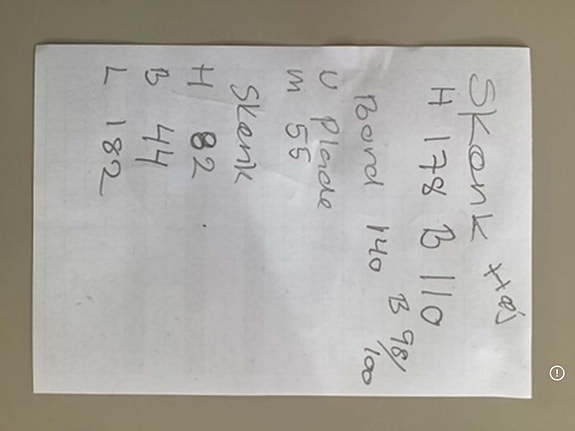 Skank Høj
H 178 B 110
Bord 140 B 98/100
U Plade
M 55
Skenk
H 82
B 44
L 182